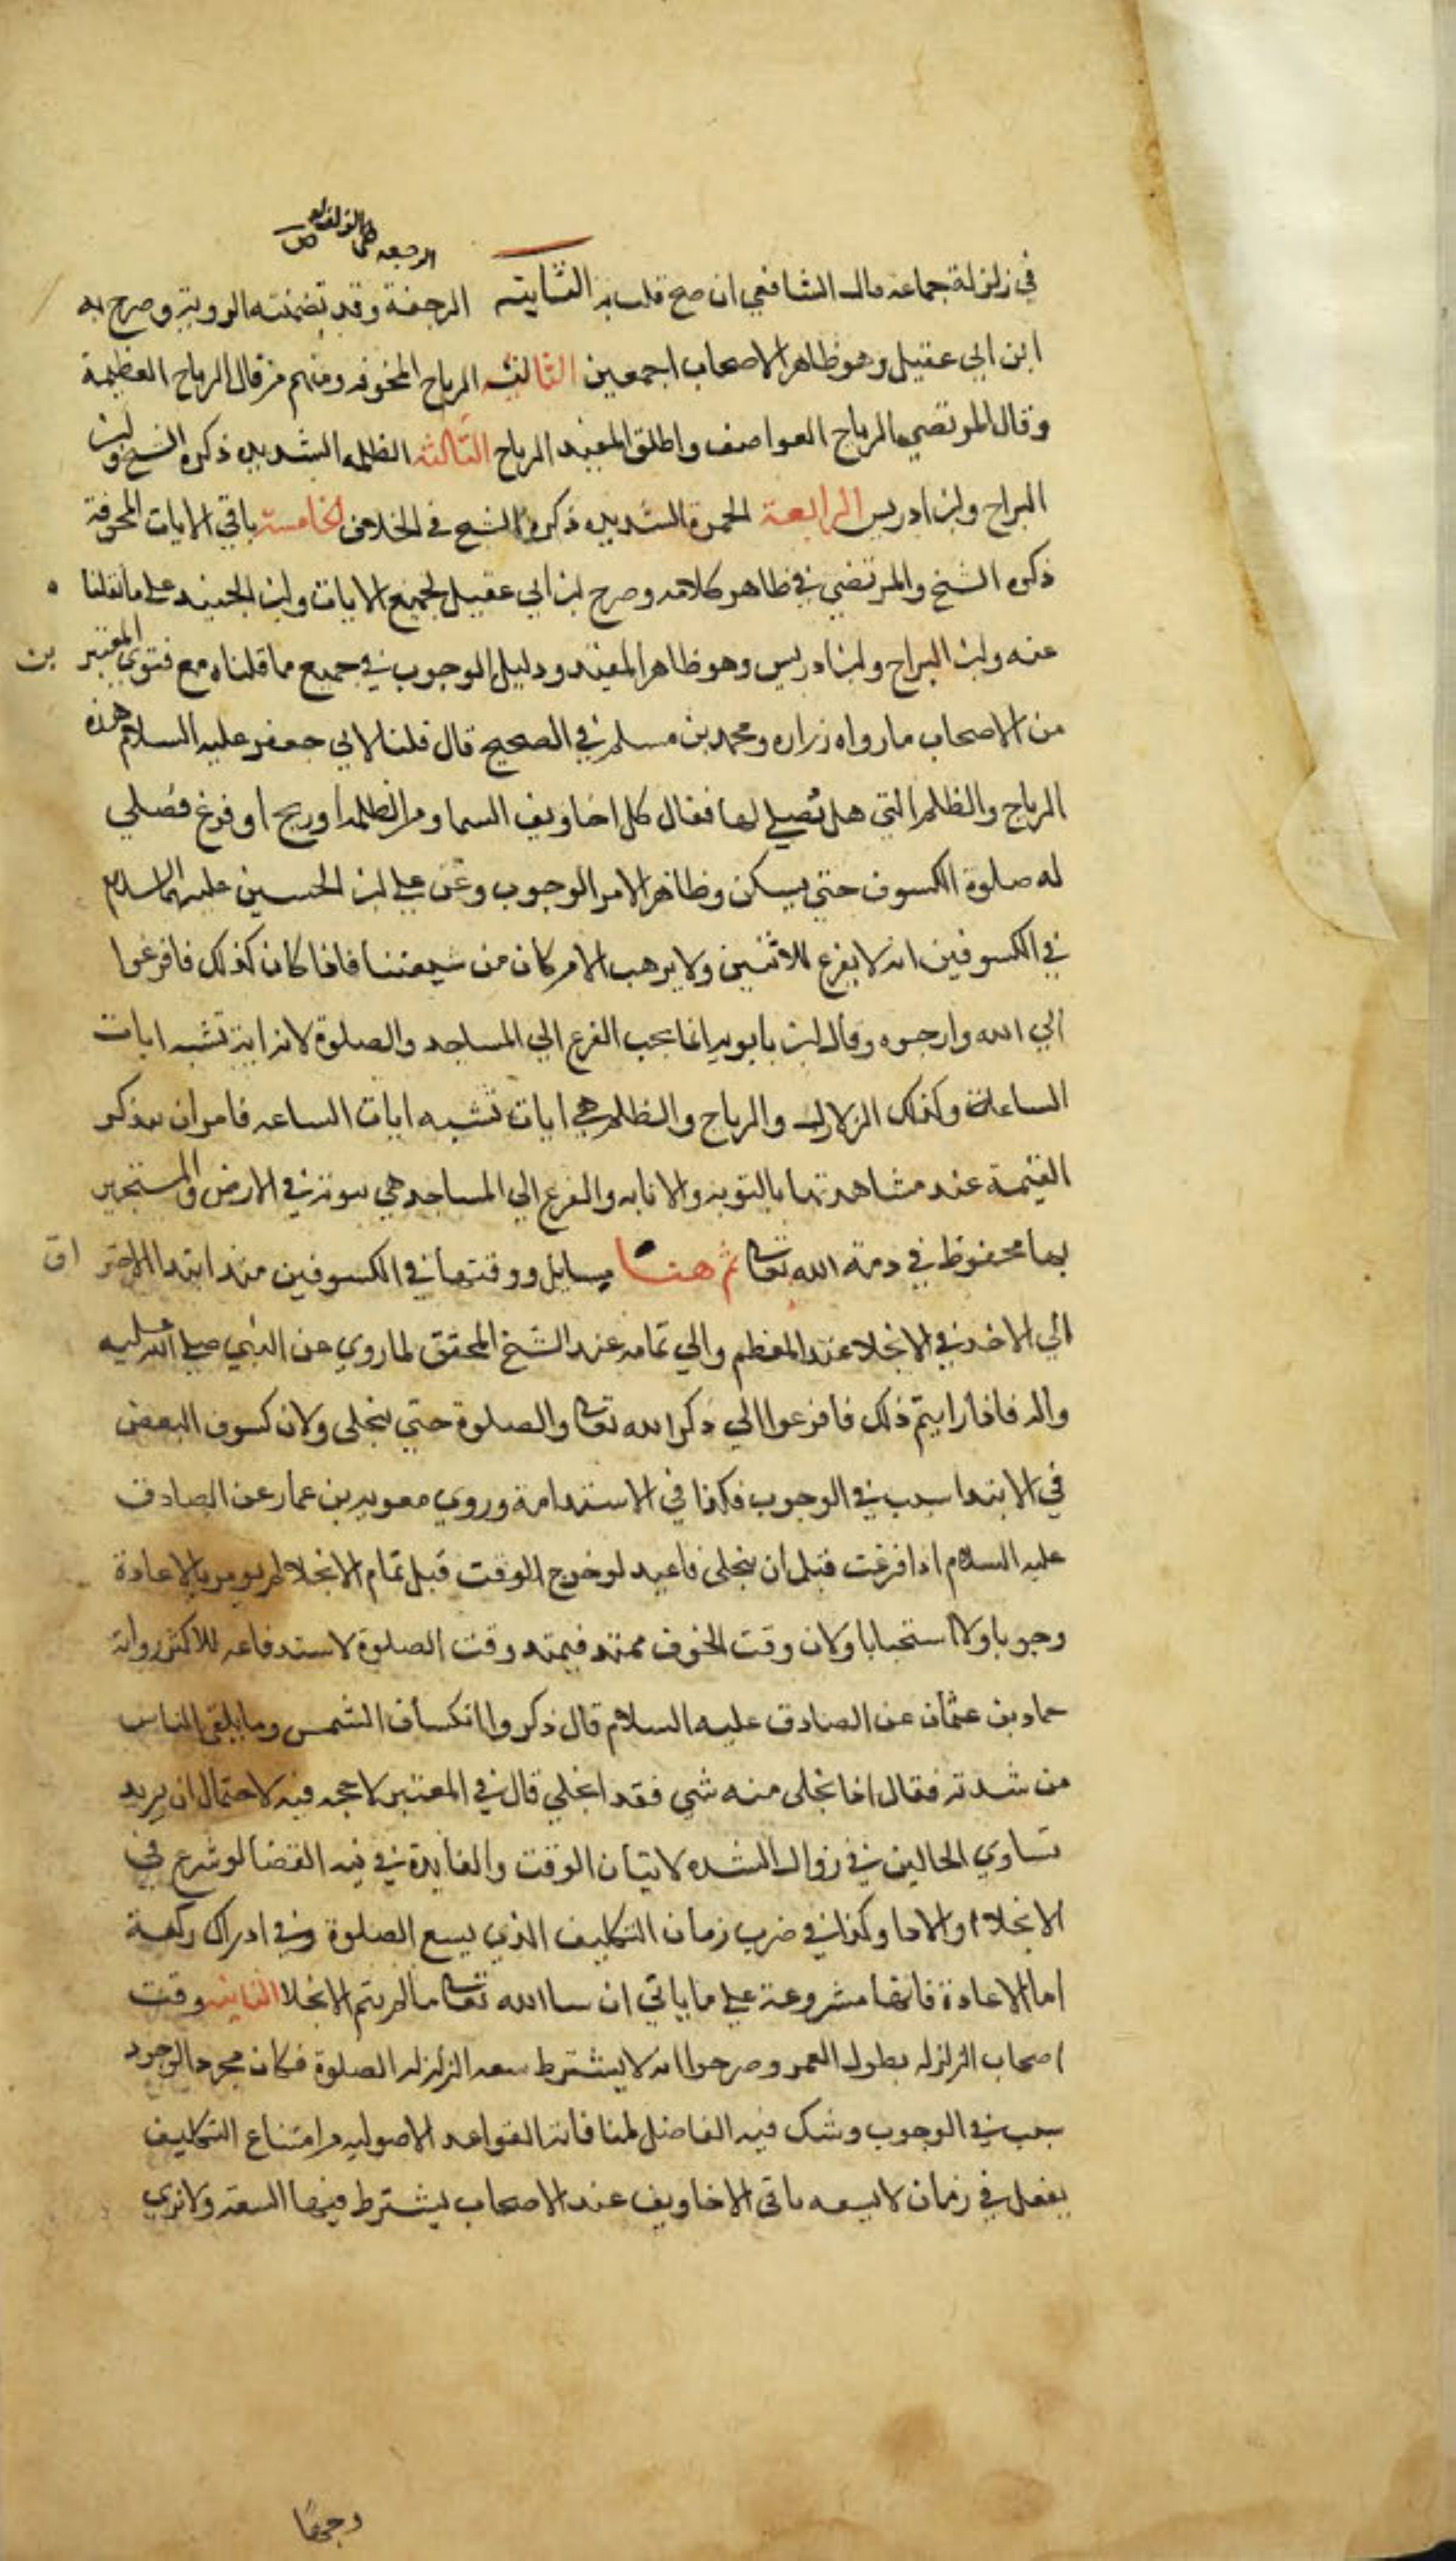 الرجعه هى الزلزله ص
في زلزلة جماعه قال الشافعي ان صح قلت به الثانيه الرجفة وقد تضمنته الرواية وصرح به
ابن ابي عقيل وهو ظاهر الاصحاب اجمعين الثالثه الرياح المخوفه ومنهم من قال الرياح العظيمة
وقال المرتضي الرياح العواصف واطلق المفيد الرياح الثالثه الظلمه الشديده ذكره الشيخ وابن
البراج وابن ادريس الرابعة الحمرة الشديده ذكره الشيخ في الخلاف الخامسة باقي الايات المخوفة
ذكره الشيخ والمرتضي في ظاهر كلامه وصرح ابن ابي عقيل بجميع الايات وابن الجنيد علي ما نقلنا
عنه وابن البراج وابن ادريس وهو ظاهر المفيد ودليل الوجوب في جميع ما قلناه مع فتوي المعتبر ين
من الاصحاب ما رواه زراره ومحمد بن مسلم في الصحيح قال قلنا لابي جعفر عليه السلام هذه
الرياح والظلم التي هل نصلي لها فقال كل اخاويف السما من الظلمه او ريح او فزع فصلي
له صلوة الكسوف حتي يسكن وظاهر الامر الوجوب وعن علي ابن الحسين عليهما السلام
في الكسوفين انه لا يفزع للاثنين ولا يرهب الا من كان من شيعتنا فاذا كان كذلك فافزعوا
الي الله وارجوه وقال ابن بابويه انما يجب الفزع الي المساجد والصلوة لانه اية تشبه ايات
الساعة وكذلك الزلازل والرياح والظلم هي ايات تشبه ايات الساعه فامر ان يذكر
القيمة عند مشاهدتها بالتوبه والانابه والفزع الي المساجد هي بيوته في الارض والمستجير
بها محفوظ في ذمة الله تعالى ثم هنا مسايل ووقتها في الكسوفين منذ ابتدا الاحتر اق
الي الاخذ في الانجلا عند المعظم والي تمامه عند الشيخ المحقق لما روي عن النبي صلي الله عليه
واله فاذا رايتم ذلك فافزعوا الي ذكر الله تعالى والصلوة حتي ينجلى ولان كسوف البعض
في الابتدا سبب في الوجوب فكذا في الاستدامة وروي معويه بن عمار عن الصادق
عليه السلام اذا فرغت قبل ان ينجلى فاعيد لو خرج الوقت قبل تمام الانجلا لم يومر بالاعادة
وجوبا ولا استحبابا ولان وقت الخوف ممتد فيمتد وقت الصلوة لاستدفاعه للاكثر رواية
حماد بن عثمان عن الصادق عليه السلام قال ذكروا انكساف الشمس وما يلقى الناس
من شدته فقال اذا انجلى منه شي فقد انجلي قال في المعتبر لا حجه فيه لاحتمال ان يريد
تساوي الحالين في زوال الشده لا بيان الوقت والفايدة في نيه القضا لو شرع في
الانجلاء او الادا وكذا في ضرب زمان التكليف الذي يسع الصلوة وفي ادراك ركعة
اما الاعادة فانها مشروعة علي ما ياتي ان سا الله تعالى ما لم يتم الانجلا الثانيه وقت
اصحاب الزلزله بطول العمر وصرحوا انه لا يشترط سعه الزلزله الصلوة فكان مجرد الوجود
سبب في الوجوب وشك فيه الفاضل لمنافاته القواعد الاصوليه من امتناع التكليف
بفعل في زمان لا يسعه باقى الاخاويف عند الاصحاب يشترط فيها السعه ولا نري
وجهًا